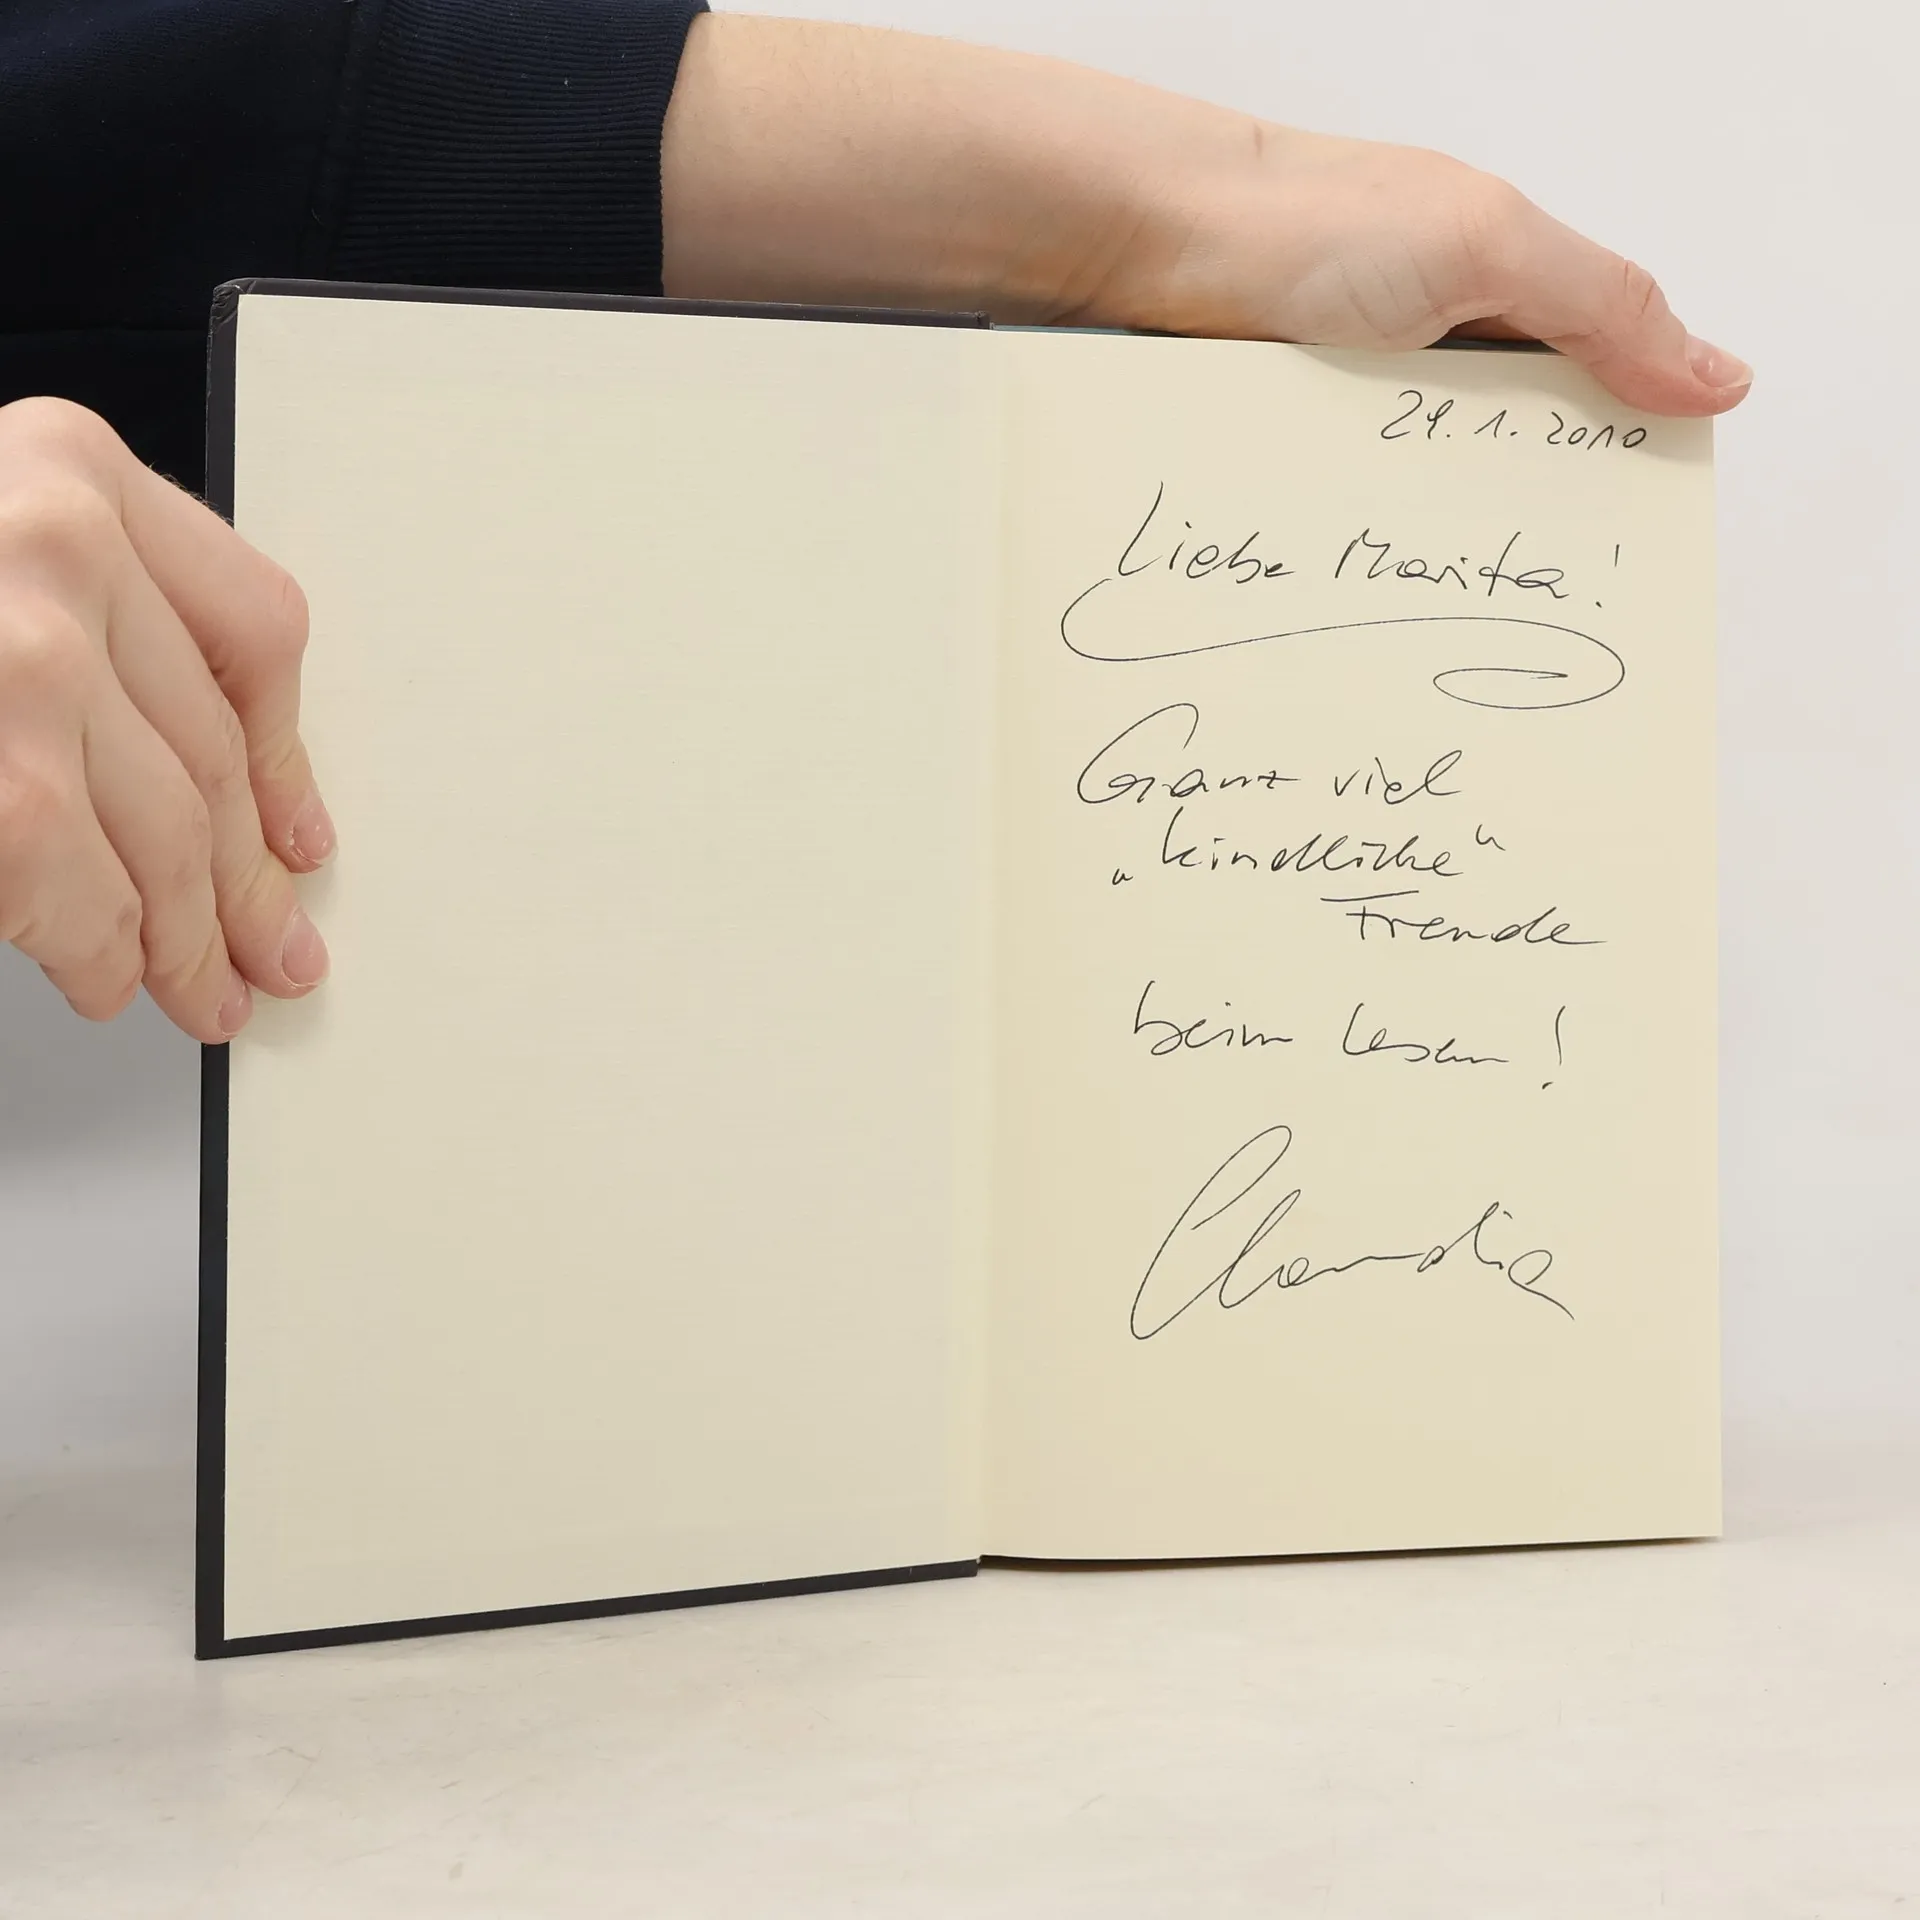 29. 1. 2010
Liebe Marita!
Ganz viel
„kindliche“
Freude
beim Lesen!
Claudia